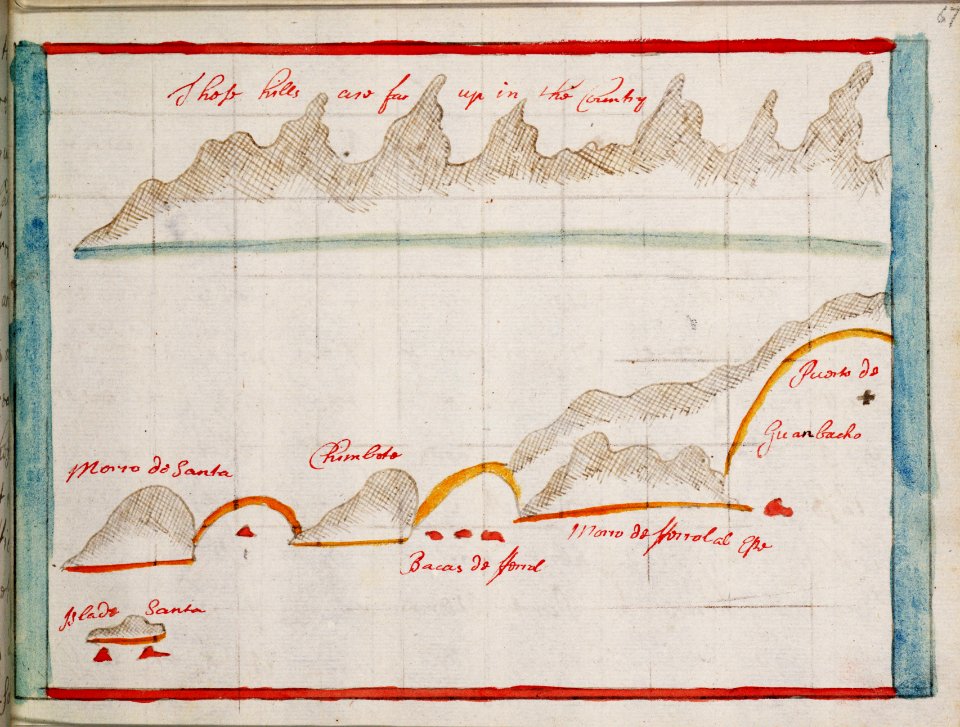 67
These hills are far up in the Country
Puerto de
Guanbacho
Chimbote
Morro de Santa
Morro de fferrol al Ese
Bacas de fferrol
Isla de Santa